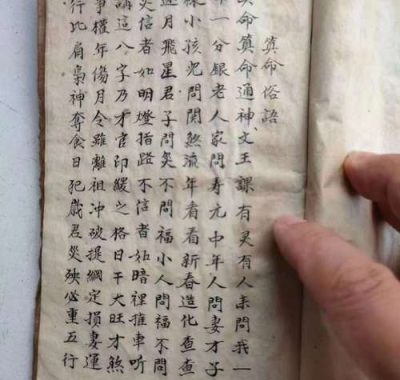 算命俗語
命算命通神文王課有灵有人来問我一
一分銀老人家問寿元中年人問妻才子
小孩兒問開煞流年看看新春造化查查
逐月飛星君子問災不問福小人問福不問
災信者如明燈指路不信者如暗裡推車听
講這八字乃才官印綬之格日干大旺才煞
爭權年傷月令雖離祖冲破提綱定損妻運
行比肩梟神奪食日犯歲君災殃必重五行